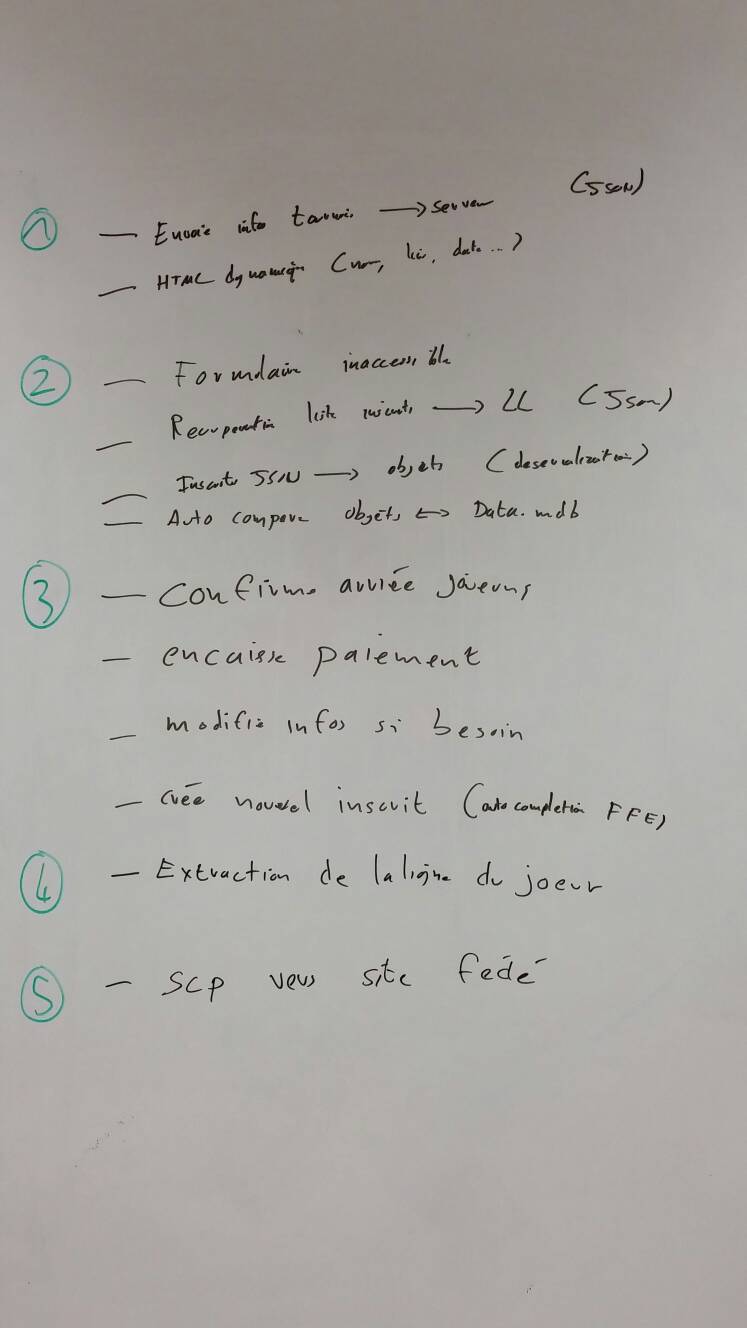 1 — Envoie info tournoi → serveur (JSON)
— HTML dynamiq (nom, lieu, date...)
2 — Formulaire inaccessible
— Recuperation liste inscrits → LL (JSON)
— Inscrits JSON → objets (deserialization)
— Auto compare objets ↔ Data.mdb
3 — Confirme arrivée joueurs
— encaisse paiement
— modifie infos si besoin
— Crée nouvel inscrit (auto completion FFE)
4 — Extraction de la ligne du joeur
5 — SCP vers site fédé